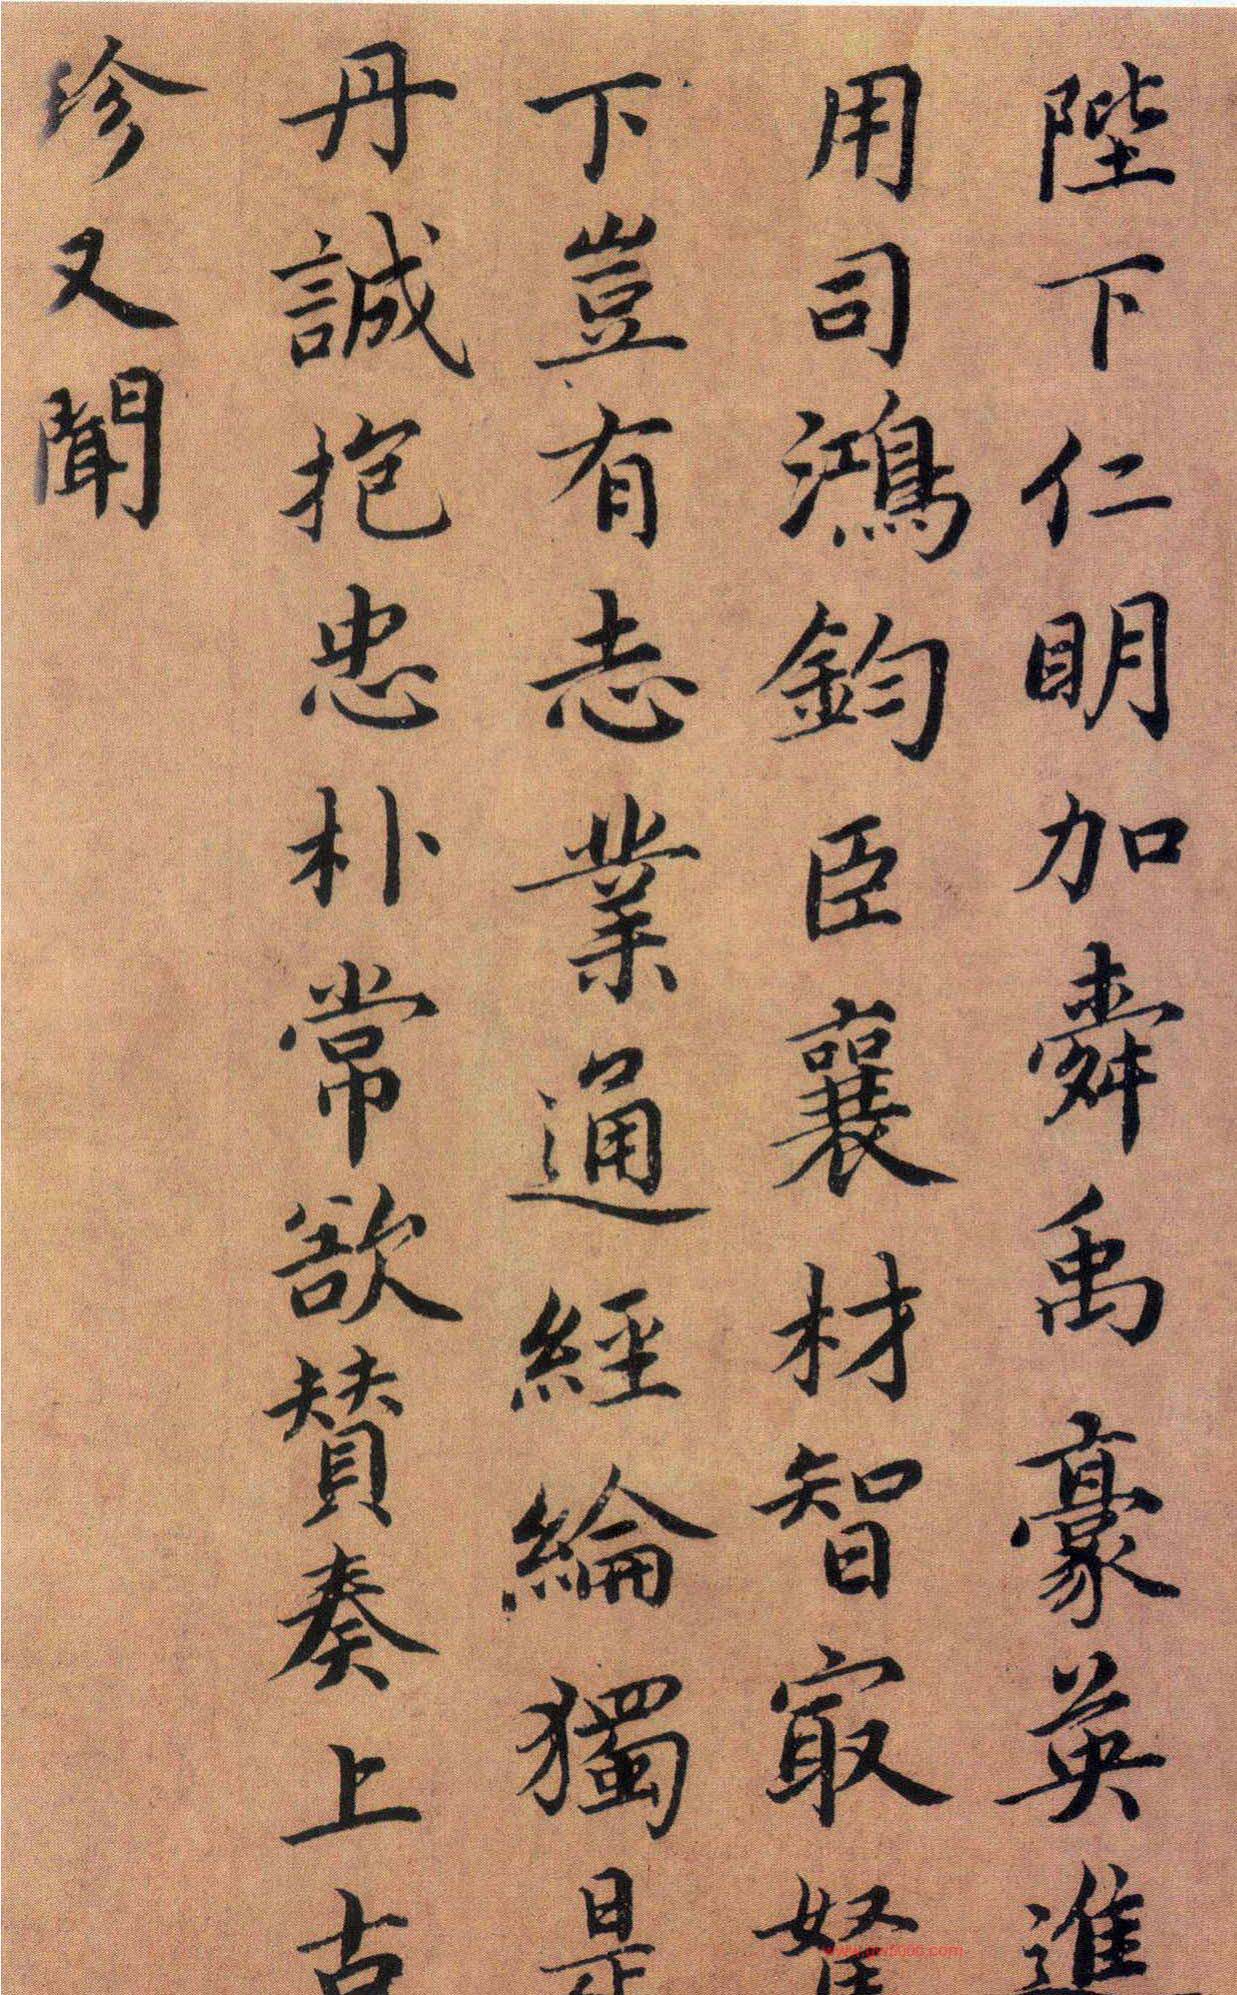 陛下仁明加舜禹豪英進
用司鴻鈞臣襄材智㝡駑
下豈有志業通經綸獨是
丹誠抱忠朴常欲賛奏上古
珍又聞